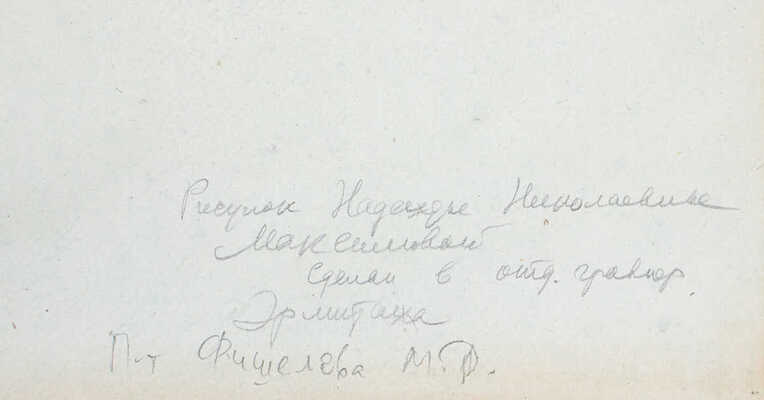 Рисунок Надежды Николаевны
Максимовой
сделан в отд. гравюр
Эрмитажа
П-т Фишелева М.Д.